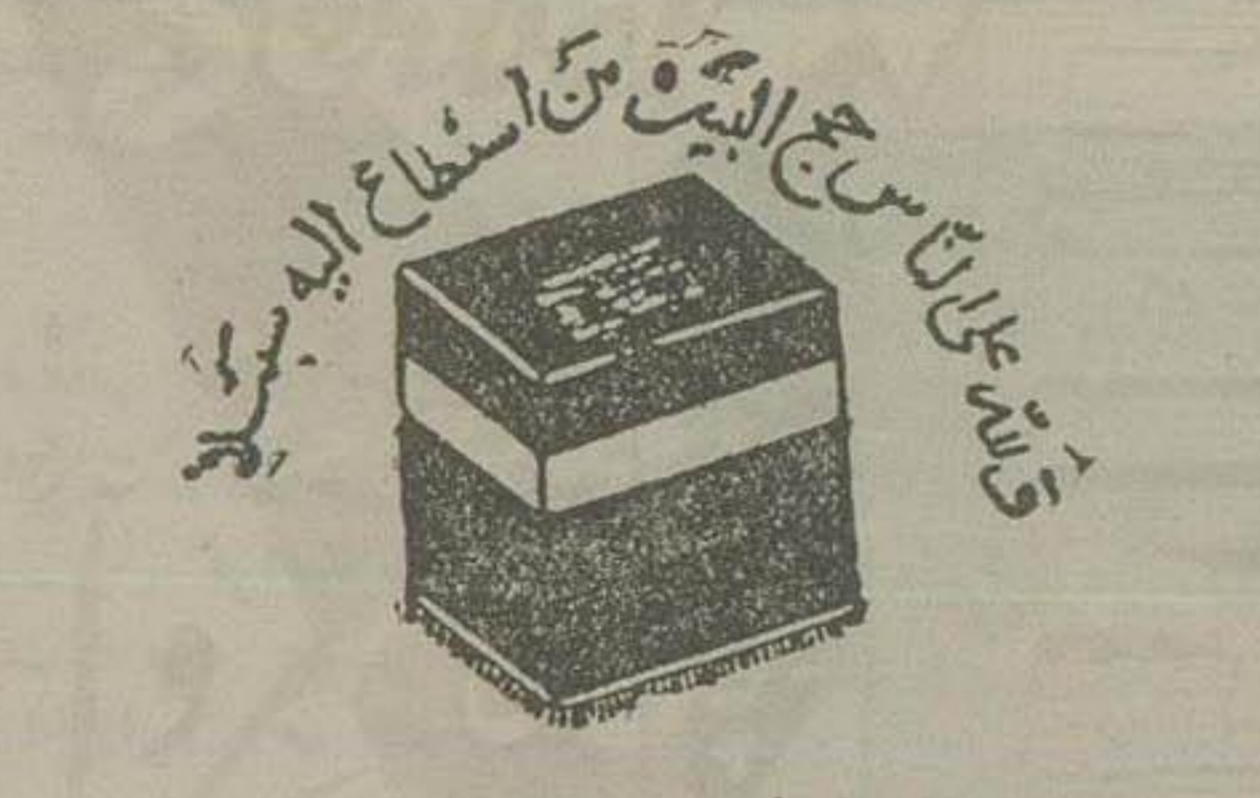 وَللّٰه على النّاس حج البيت من استطاع اليه سبيلا